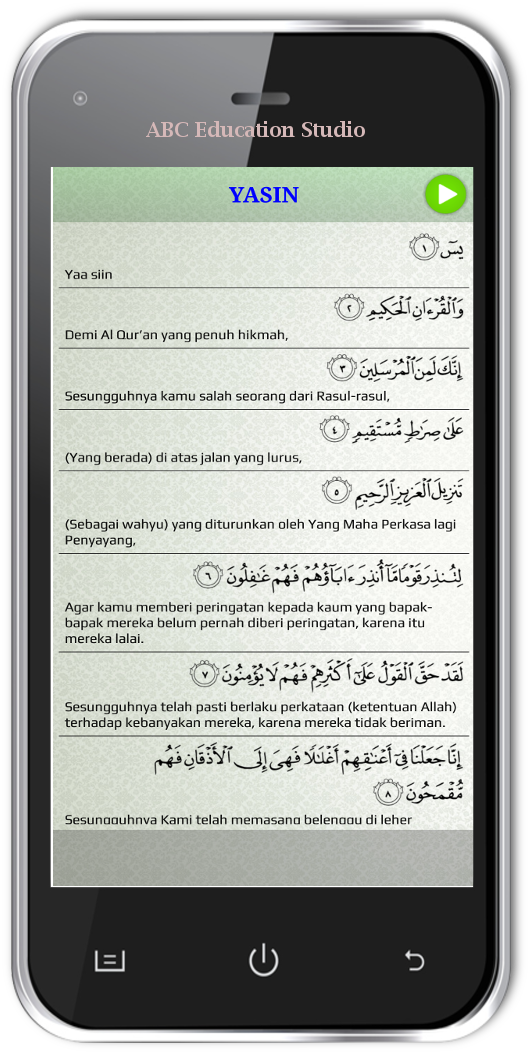 ABC Education Studio
YASIN
يسٓ ١
Yaa siin
وَٱلْقُرْءَانِ ٱلْحَكِيمِ ٢
Demi Al Qur'an yang penuh hikmah,
إِنَّكَ لَمِنَ ٱلْمُرْسَلِينَ ٣
Sesungguhnya kamu salah seorang dari Rasul-rasul,
عَلَىٰ صِرَٰطٍ مُّسْتَقِيمٍ ٤
(Yang berada) di atas jalan yang lurus,
تَنزِيلَ ٱلْعَزِيزِ ٱلرَّحِيمِ ٥
(Sebagai wahyu) yang diturunkan oleh Yang Maha Perkasa lagi
Penyayang,
لِتُنذِرَ قَوْمًا مَّآ أُنذِرَ ءَابَآؤُهُمْ فَهُمْ غَٰفِلُونَ ٦
Agar kamu memberi peringatan kepada kaum yang bapak-
bapak mereka belum pernah diberi peringatan, karena itu
mereka lalai.
لَقَدْ حَقَّ ٱلْقَوْلُ عَلَىٰٓ أَكْثَرِهِمْ فَهُمْ لَا يُؤْمِنُونَ ٧
Sesungguhnya telah pasti berlaku perkataan (ketentuan Allah)
terhadap kebanyakan mereka, karena mereka tidak beriman.
إِنَّا جَعَلْنَا فِىٓ أَعْنَٰقِهِمْ أَغْلَٰلًا فَهِىَ إِلَى ٱلْأَذْقَانِ فَهُم
مُّقْمَحُونَ ٨
Sesungguhnya Kami telah memasang belenggu di leher